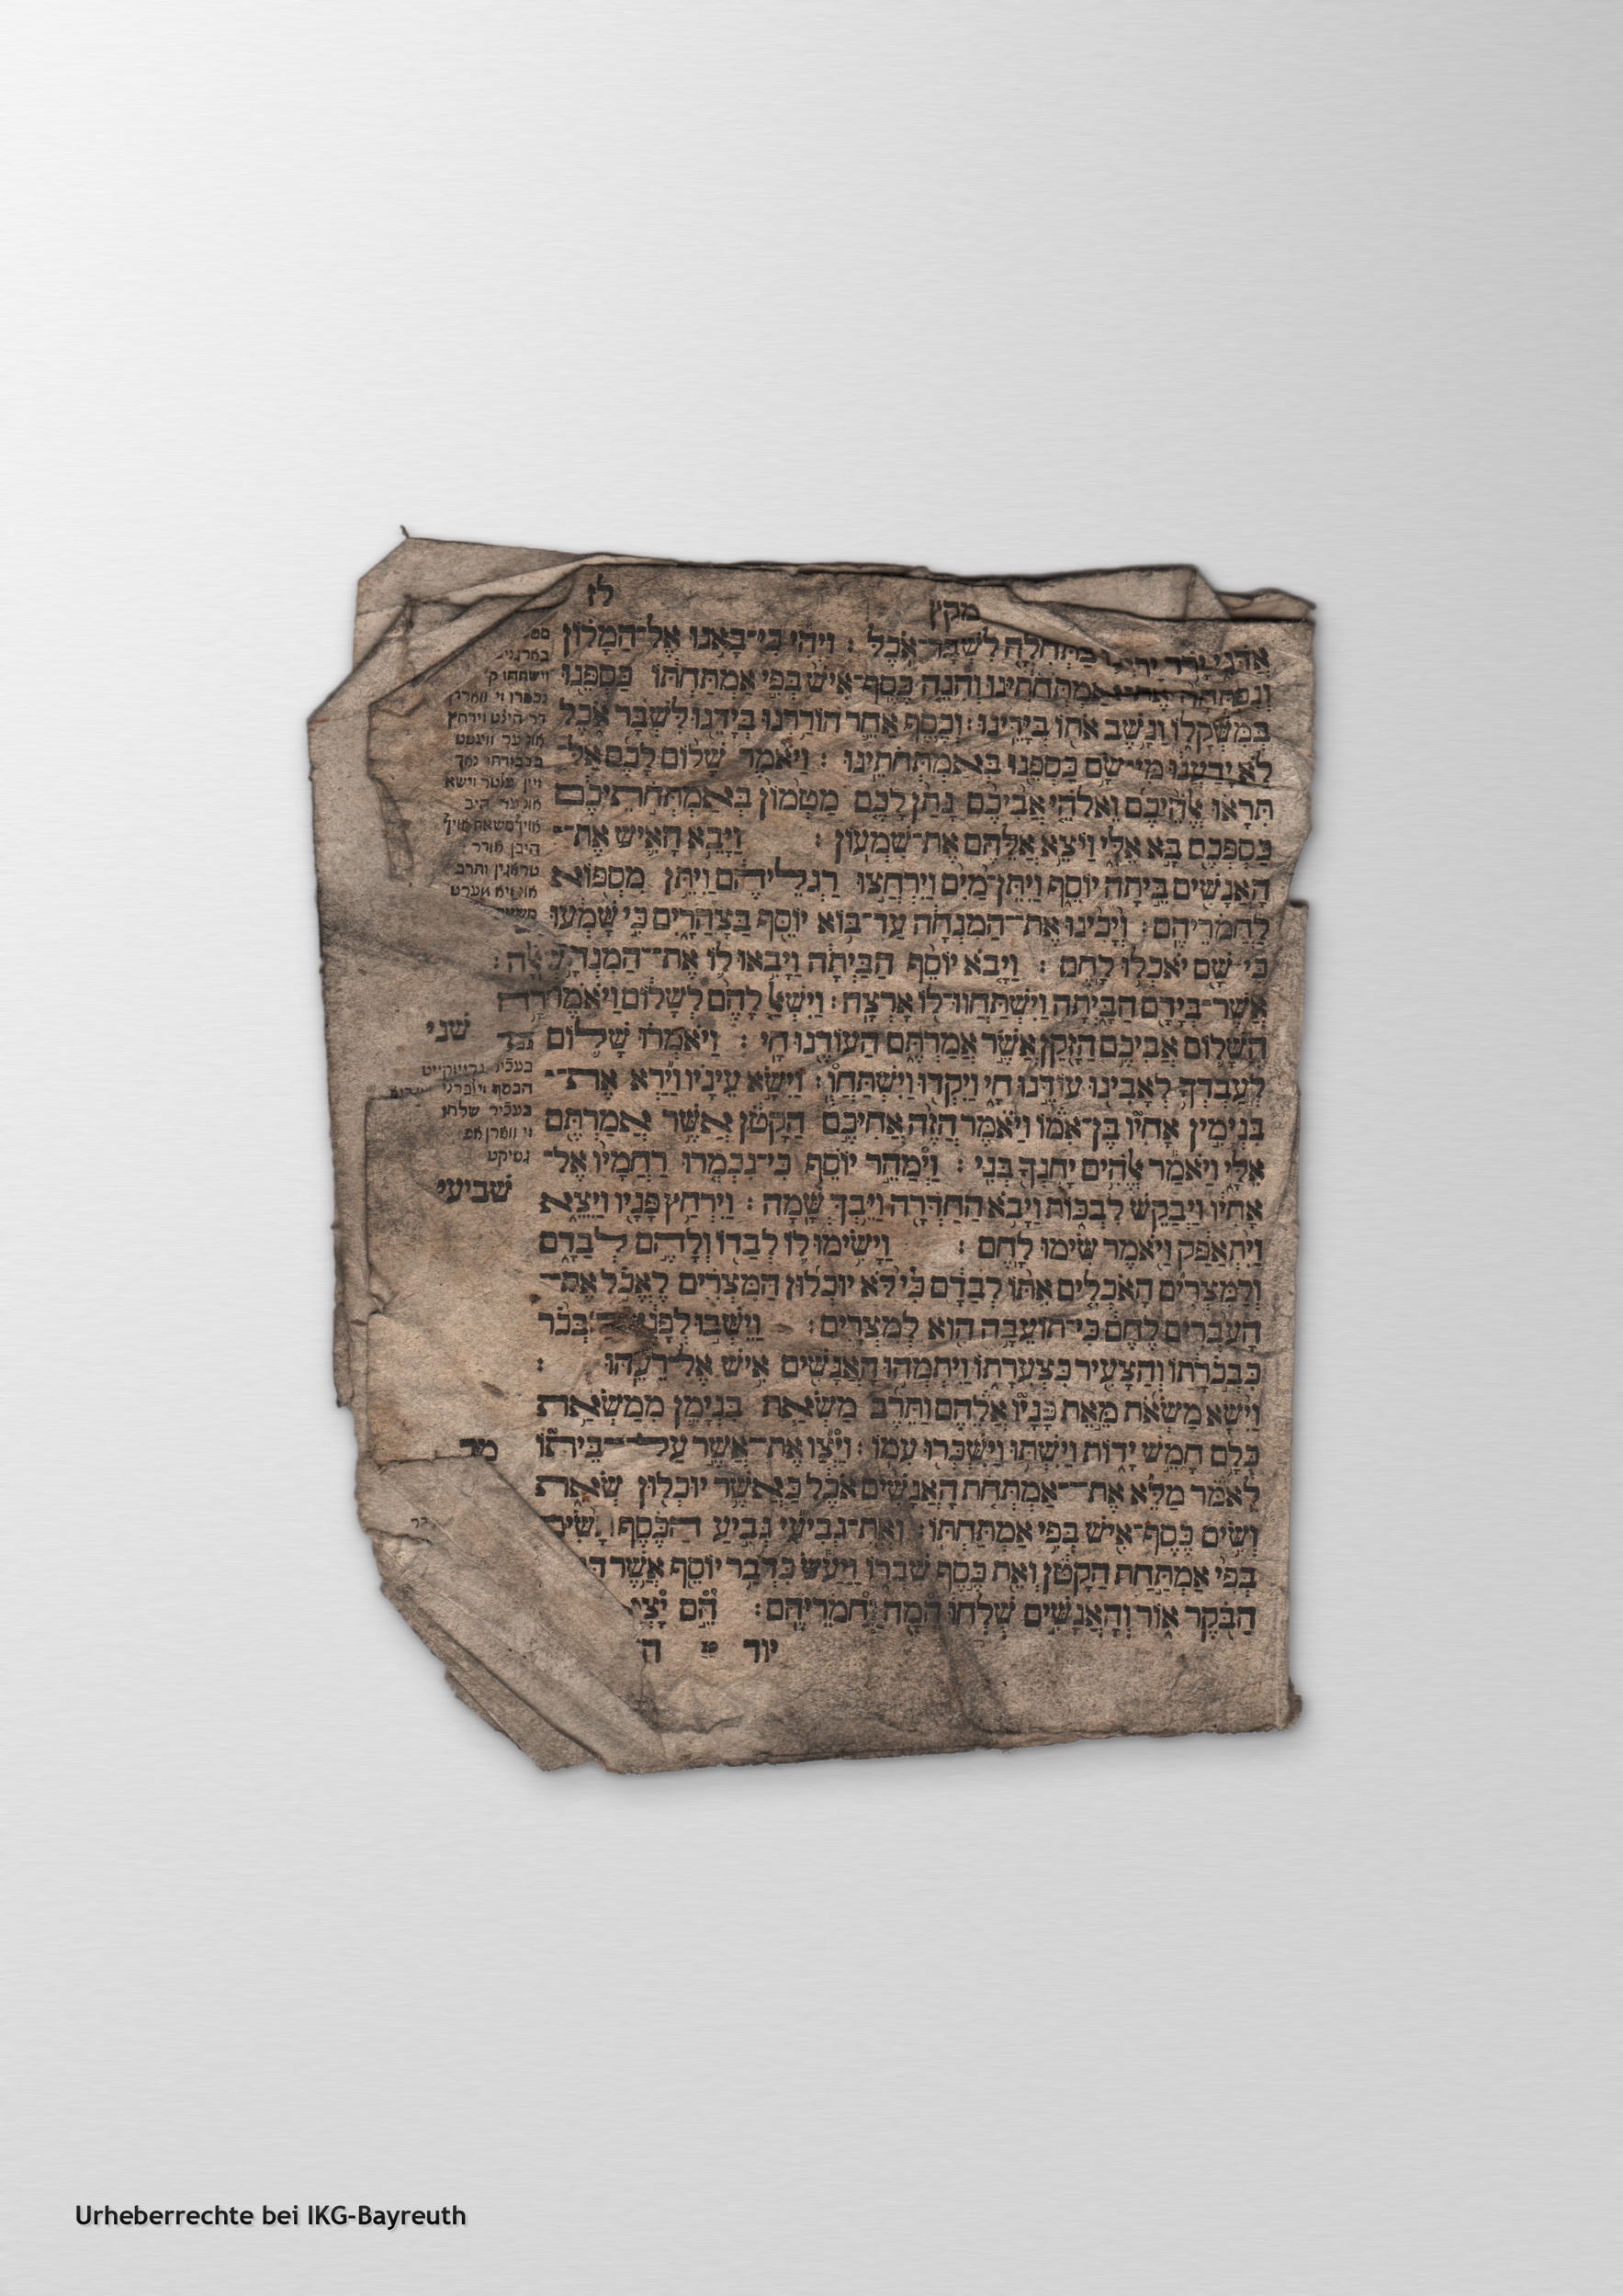 לז
מקץ
אֲדֹנִי יָרֹד בַּתְּחִלָּה לִשְׁבָּר־אֹכֶל : וַיְהִי כִּי־בָאנוּ אֶל־הַמָּלוֹן
אַמְתְּחֹתֵינוּ וְהִנֵּה כֶסֶף־אִישׁ בְּפִי אַמְתַּחְתּוֹ כַּסְפֵּנוּ
בְּמִשְׁקָלוֹ וַנָּשֶׁב אֹתוֹ בְּיָדֵינוּ : וְכֶסֶף אַחֵר הוֹרַדְנוּ בְיָדֵנוּ לִשְׁבָּר אֹכֶל
לֹא יָדַעְנוּ מִי־שָׂם כַּסְפֵּנוּ בְּאַמְתְּחֹתֵינוּ : וַיֹּאמֶר שָׁלוֹם לָכֶם אַל־
תִּרָאוּ אֱלֹהֵיכֶם וֵאלֹהֵי אֲבִיכֶם נָתַן לָכֶם מַטְמוֹן בְּאַמְתְּחֹתֵיכֶם
כַּסְפְּכֶם בָּא אֵלָי וַיּוֹצֵא אֲלֵהֶם אֶת־שִׁמְעוֹן : וַיָּבֵא הָאִישׁ אֶת־
הָאֲנָשִׁים בֵּיתָה יוֹסֵף וַיִּתֶּן־מַיִם וַיִּרְחֲצוּ רַגְלֵיהֶם וַיִּתֵּן מִסְפּוֹא
לַחֲמֹרֵיהֶם : וַיָּכִינוּ אֶת־הַמִּנְחָה עַד־בּוֹא יוֹסֵף בַּצָּהֳרָיִם כִּי שָׁמְעוּ
כִּי־שָׁם יֹאכְלוּ לָחֶם : וַיָּבֹא יוֹסֵף הַבַּיְתָה וַיָּבִיאּוּ לוֹ אֶת־הַמִּנְחָה
אֲשֶׁר־בְּיָדָם הַבָּיְתָה וַיִּשְׁתַּחֲווּ־לוֹ אָרְצָה : וַיִּשְׁאַל לָהֶם לְשָׁלוֹם וַיֹּאמֶר
הֲשָׁלוֹם אֲבִיכֶם הַזָּקֵן אֲשֶׁר אֲמַרְתֶּם הַעוֹדֶנּוּ חָי : וַיֹּאמְרוּ שָׁלוֹם
לְעַבְדְּךָ לְאָבִינוּ עוֹדֶנּוּ חָי וַיִּקְּדוּ וַיִּשְׁתַּחֲוּ : וַיִּשָּׂא עֵינָיו וַיַּרְא אֶת־
בִּנְיָמִין אָחִיו בֶּן־אִמּוֹ וַיֹּאמֶר הֲזֶה אֲחִיכֶם הַקָּטֹן אֲשֶׁר אֲמַרְתֶּם
אֵלָי וַיֹּאמַר אֱלֹהִים יָחְנְךָ בְּנִי : וַיְמַהֵר יוֹסֵף כִּי־נִכְמְרוּ רַחֲמָיו אֶל־
אָחִיו וַיְבַקֵּשׁ לִבְכּוֹת וַיָּבֹא הַחַדְרָה וַיֵּבְךְּ שָׁמָּה : וַיִּרְחַץ פָּנָיו וַיֵּצֵא
וַיִּתְאַפַּק וַיֹּאמֶר שִׂימוּ לָחֶם : וַיָּשִׂימוּ לוֹ לְבַדּוֹ וְלָהֶם לְבַדָּם
וְלַמִּצְרִים הָאֹכְלִים אִתּוֹ לְבַדָּם כִּי לֹא יוּכְלוּן הַמִּצְרִים לֶאֱכֹל אֶת־
הָעִבְרִים לֶחֶם כִּי־תוֹעֵבָה הִוא לְמִצְרָיִם : וַיֵּשְׁבוּ לְפָנָיו הַבְּכֹר
כִּבְכֹרָתוֹ וְהַצָּעִיר כִּצְעִרָתוֹ וַיִּתְמְהוּ הָאֲנָשִׁים אִישׁ אֶל־רֵעֵהוּ :
וַיִּשָּׂא מַשְׂאֹת מֵאֵת פָּנָיו אֲלֵהֶם וַתֵּרֶב מַשְׂאַת בִּנְיָמִן מִמַּשְׂאֹת
כֻּלָּם חָמֵשׁ יָדוֹת וַיִּשְׁתּוּ וַיִּשְׁכְּרוּ עִמּוֹ : וַיְצַו אֶת־אֲשֶׁר עַל־בֵּיתוֹ
לֵאמֹר מַלֵּא אֶת־אַמְתְּחֹת הָאֲנָשִׁים אֹכֶל כַּאֲשֶׁר יוּכְלוּן שְׂאֵת
וְשִׂים כֶּסֶף־אִישׁ בְּפִי אַמְתַּחְתּוֹ : וְאֶת־גְּבִיעִי גְּבִיעַ הַכֶּסֶף תָּשִׂים
בְּפִי אַמְתַּחַת הַקָּטֹן וְאֵת כֶּסֶף שִׁבְרוֹ וַיַּעַשׂ כִּדְבַר יוֹסֵף אֲשֶׁר
הַבֹּקֶר אוֹר וְהָאֲנָשִׁים שֻׁלְּחוּ הֵמָּה וַחֲמֹרֵיהֶם : הֵם יָצְ
יוד ה
שני
הכסף
בעכיר שלחן
שביעי
מד
Urheberrechte bei IKG-Bayreuth